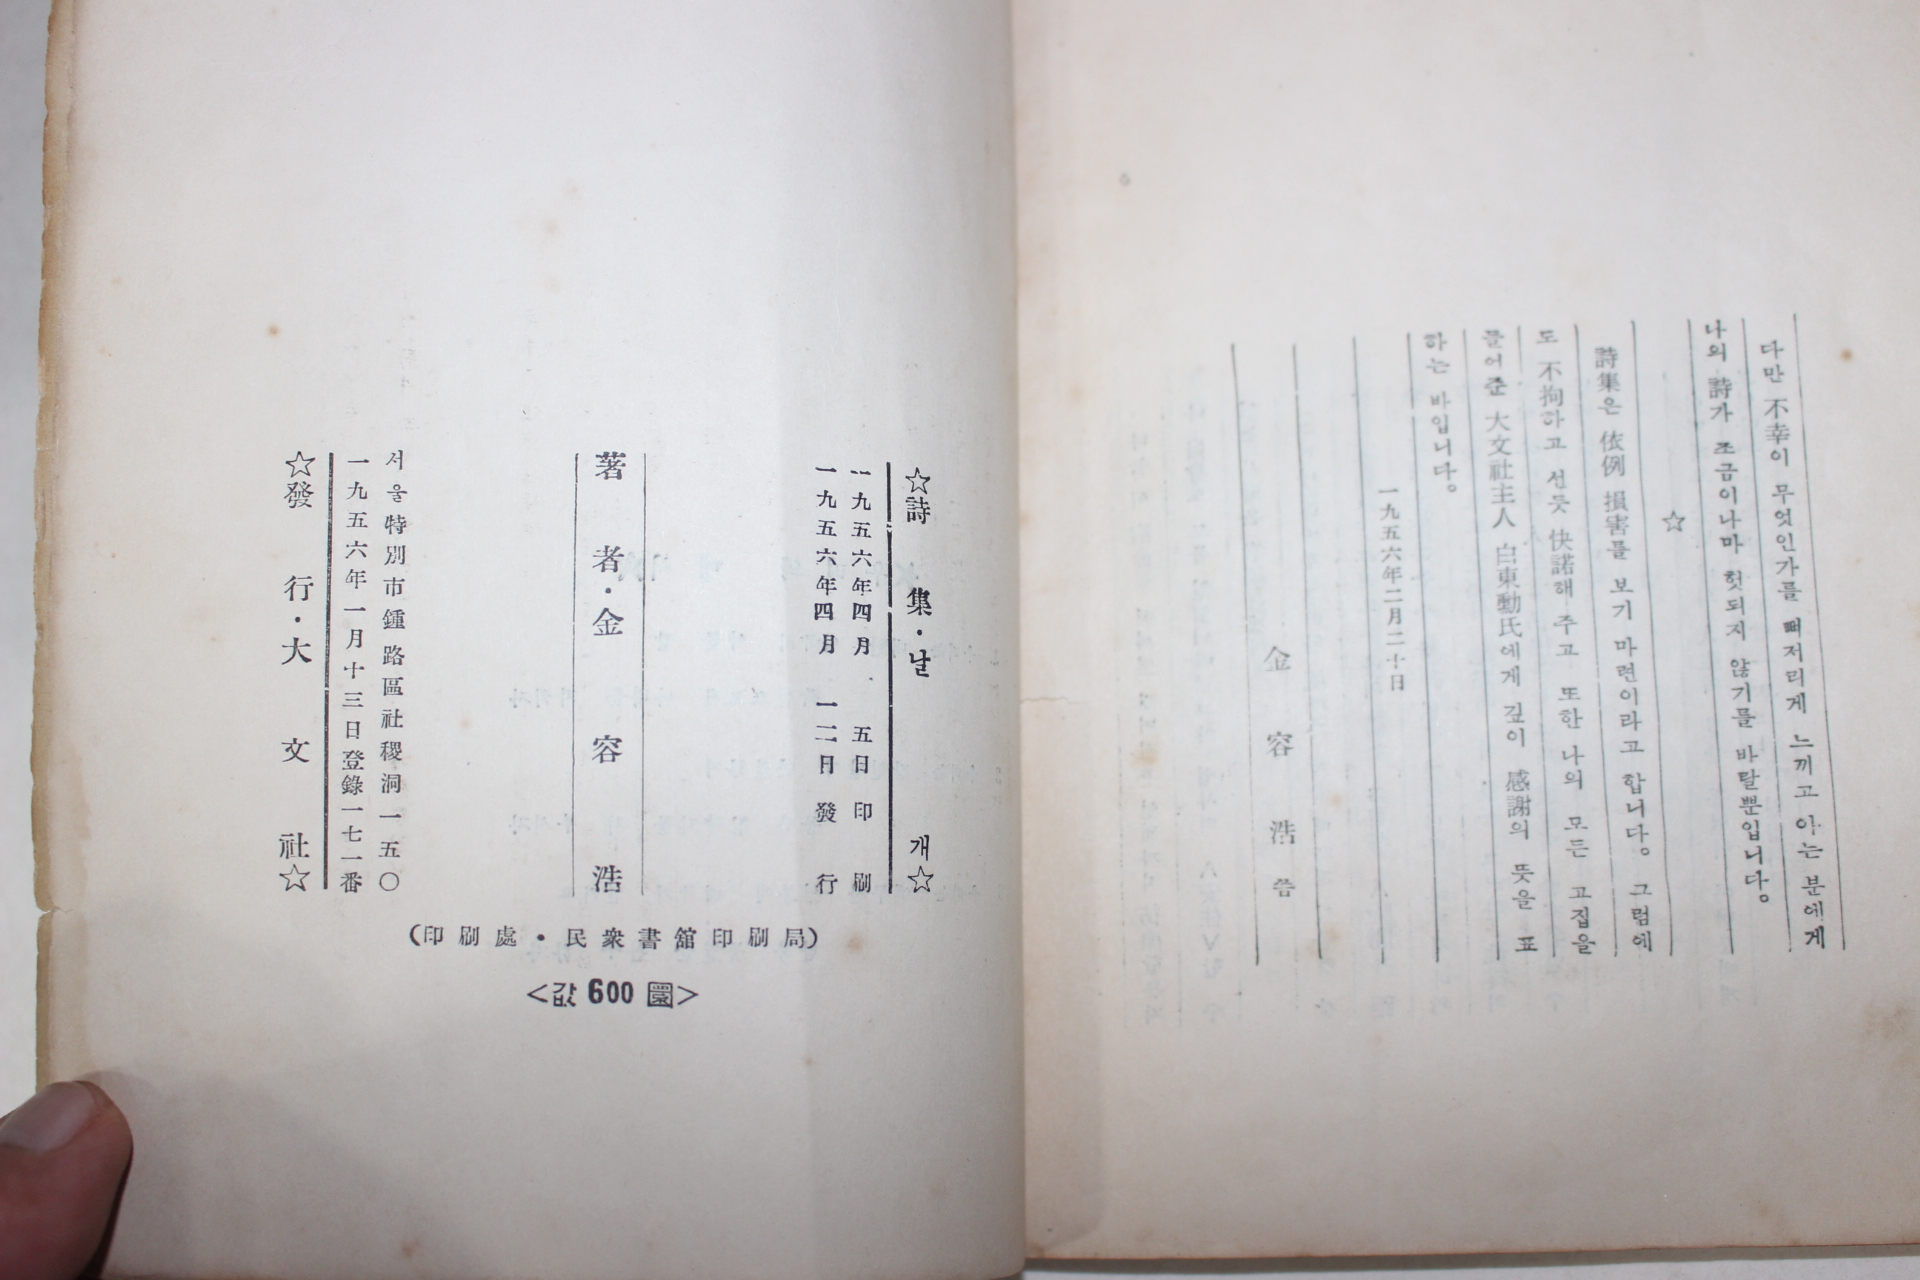 다만 不幸이 무엇인가를 뼈저리게 느끼고 아는 분에게
나의 詩가 조금이나마 헛되지 않기를 바랄뿐입니다。
☆
詩集은 依例 損害를 보기 마련이라고 합니다。그럼에
도 不拘하고 선듯 快諾해 주고 또한 나의 모든 고집을
들어준 大文社主人 白東動氏에게 깊이 感謝의 뜻을 표
하는 바입니다。
一九五六年二月二十日
金容浩 씀
☆詩集·날개☆
一九五六年四月 五日印刷
一九五六年四月 一二日發行
著者·金容浩
서울特別市鍾路區社稷洞一五〇
一九五六年一月十三日登錄一七一番
☆發行·大文社☆
(印刷處·民衆書舘印刷局)
<값 600 圜>